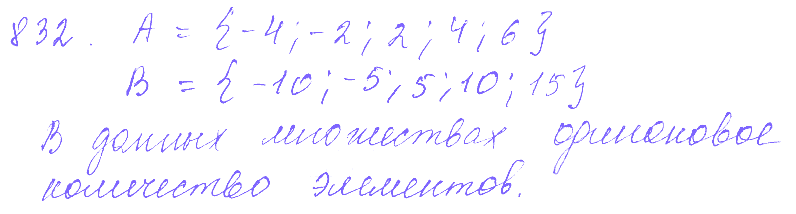 832. A = {-4; -2; 2; 4; 6}
B = {-10; -5; 5; 10; 15}
В данных множествах одинаковое
количество элементов.